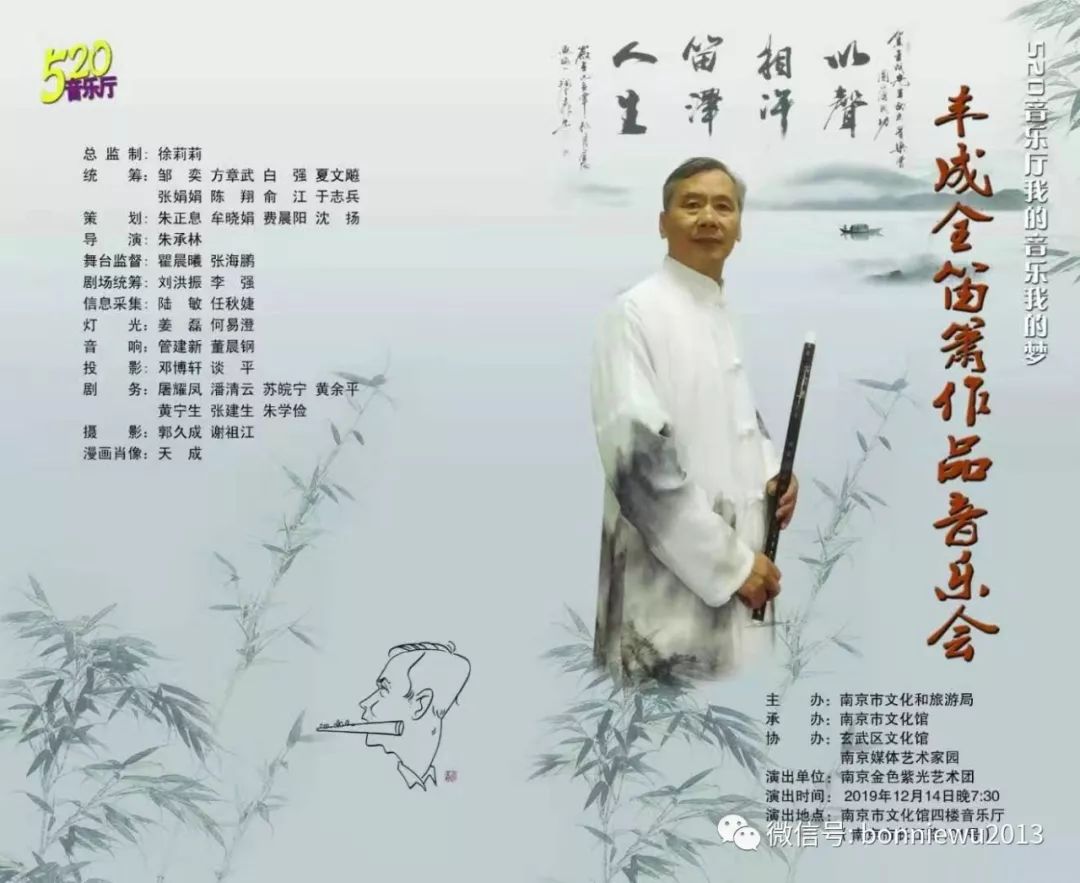 520
音乐厅
总 监 制：徐莉莉
统 筹：邹 奕 方章武 白 强 夏文飚
张娟娟 陈 翔 俞 江 于志兵
策 划：朱正息 牟晓娟 费晨阳 沈 扬
导 演：朱承林
舞台监督：瞿晨曦 张海鹏
剧场统筹：刘洪振 李 强
信息采集：陆 敏 任秋婕
灯 光：姜 磊 何易澄
音 响：管建新 董晨钢
投 影：邓博轩 谈 平
剧 务：屠耀凤 潘清云 苏皖宁 黄余平
黄宁生 张建生 朱学俭
摄 影：郭久成 谢祖江
漫画肖像：天 成
以聲
相許
笛澤
人生
520音乐厅我的音乐我的梦
丰成全笛箫作品音乐会
主 办：南京市文化和旅游局
承 办：南京市文化馆
协 办：玄武区文化馆
南京媒体艺术家园
演出单位：南京金色紫光艺术团
演出时间：2019年12月14日晚7:30
演出地点：南京市文化馆四楼音乐厅
微信号: bonniewu2013